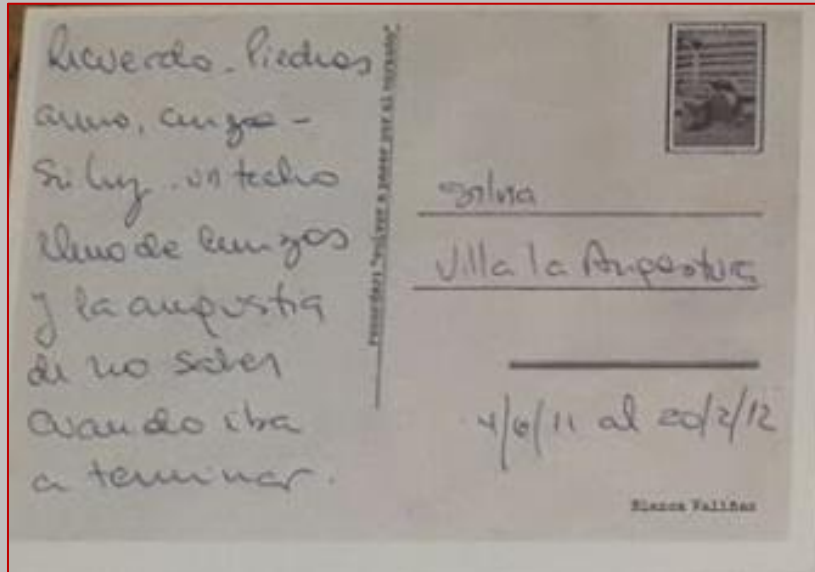 Recuerdo. Piedras
arena, ceniza -
Sin luz. un techo
lleno de cenizas
y la angustia
de no saber
cuando iba
a terminar.
Recordar: "volver a pasar por el corazón"
Silvia
Villa la Angostura
4/6/11 al 20/2/12
Blanca Valiñas